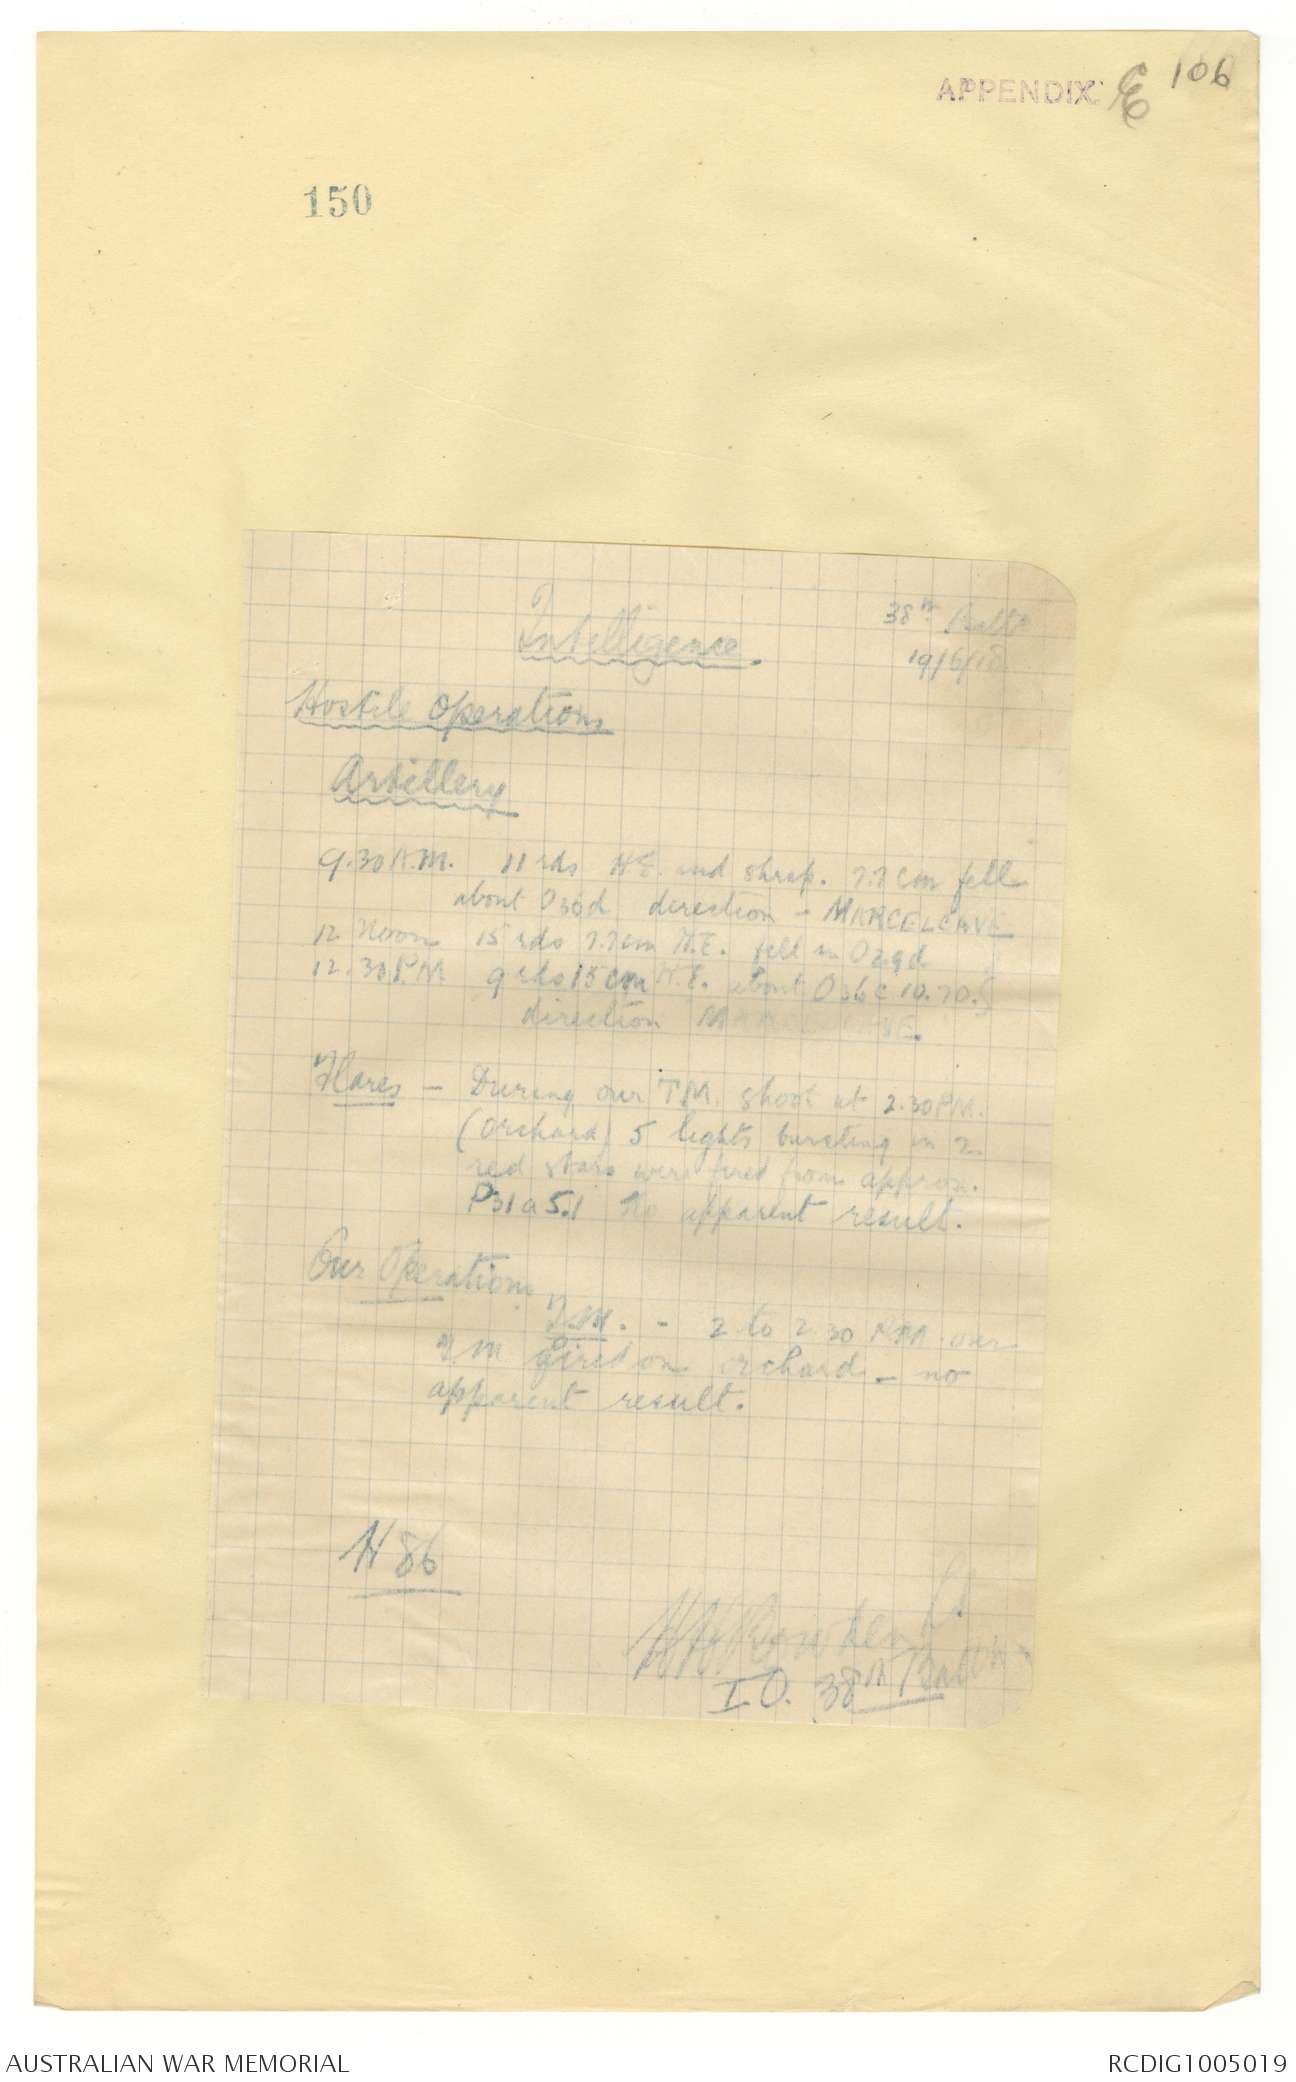 APPENDIX E 106
150
38th Battn
19/6/18
Intelligence.
Hostile Operations
Artillery
9.30 A.M. 11 rds H.E. and shrap. 7.7 cm fell
about O30d direction - MARCELCAVE
12 Noon 15 rds 7.7cm H.E. fell in O29d
12.30 P.M. 9 rds 15 cm H.E. about O36c 10.70.
direction MARCELCAVE.
Flares - During our T.M. shoot at 2.30 P.M.
(Orchard) 5 lights bursting in 2
red stars were fired from approx.
P31a 5.1 No apparent result.
Our Operations
T.M. - 2 to 2.30 P.M. our
T M fired on orchard - no
apparent result.
H 86
I.O. 38th Battn
AUSTRALIAN WAR MEMORIAL
RCDIG1005019